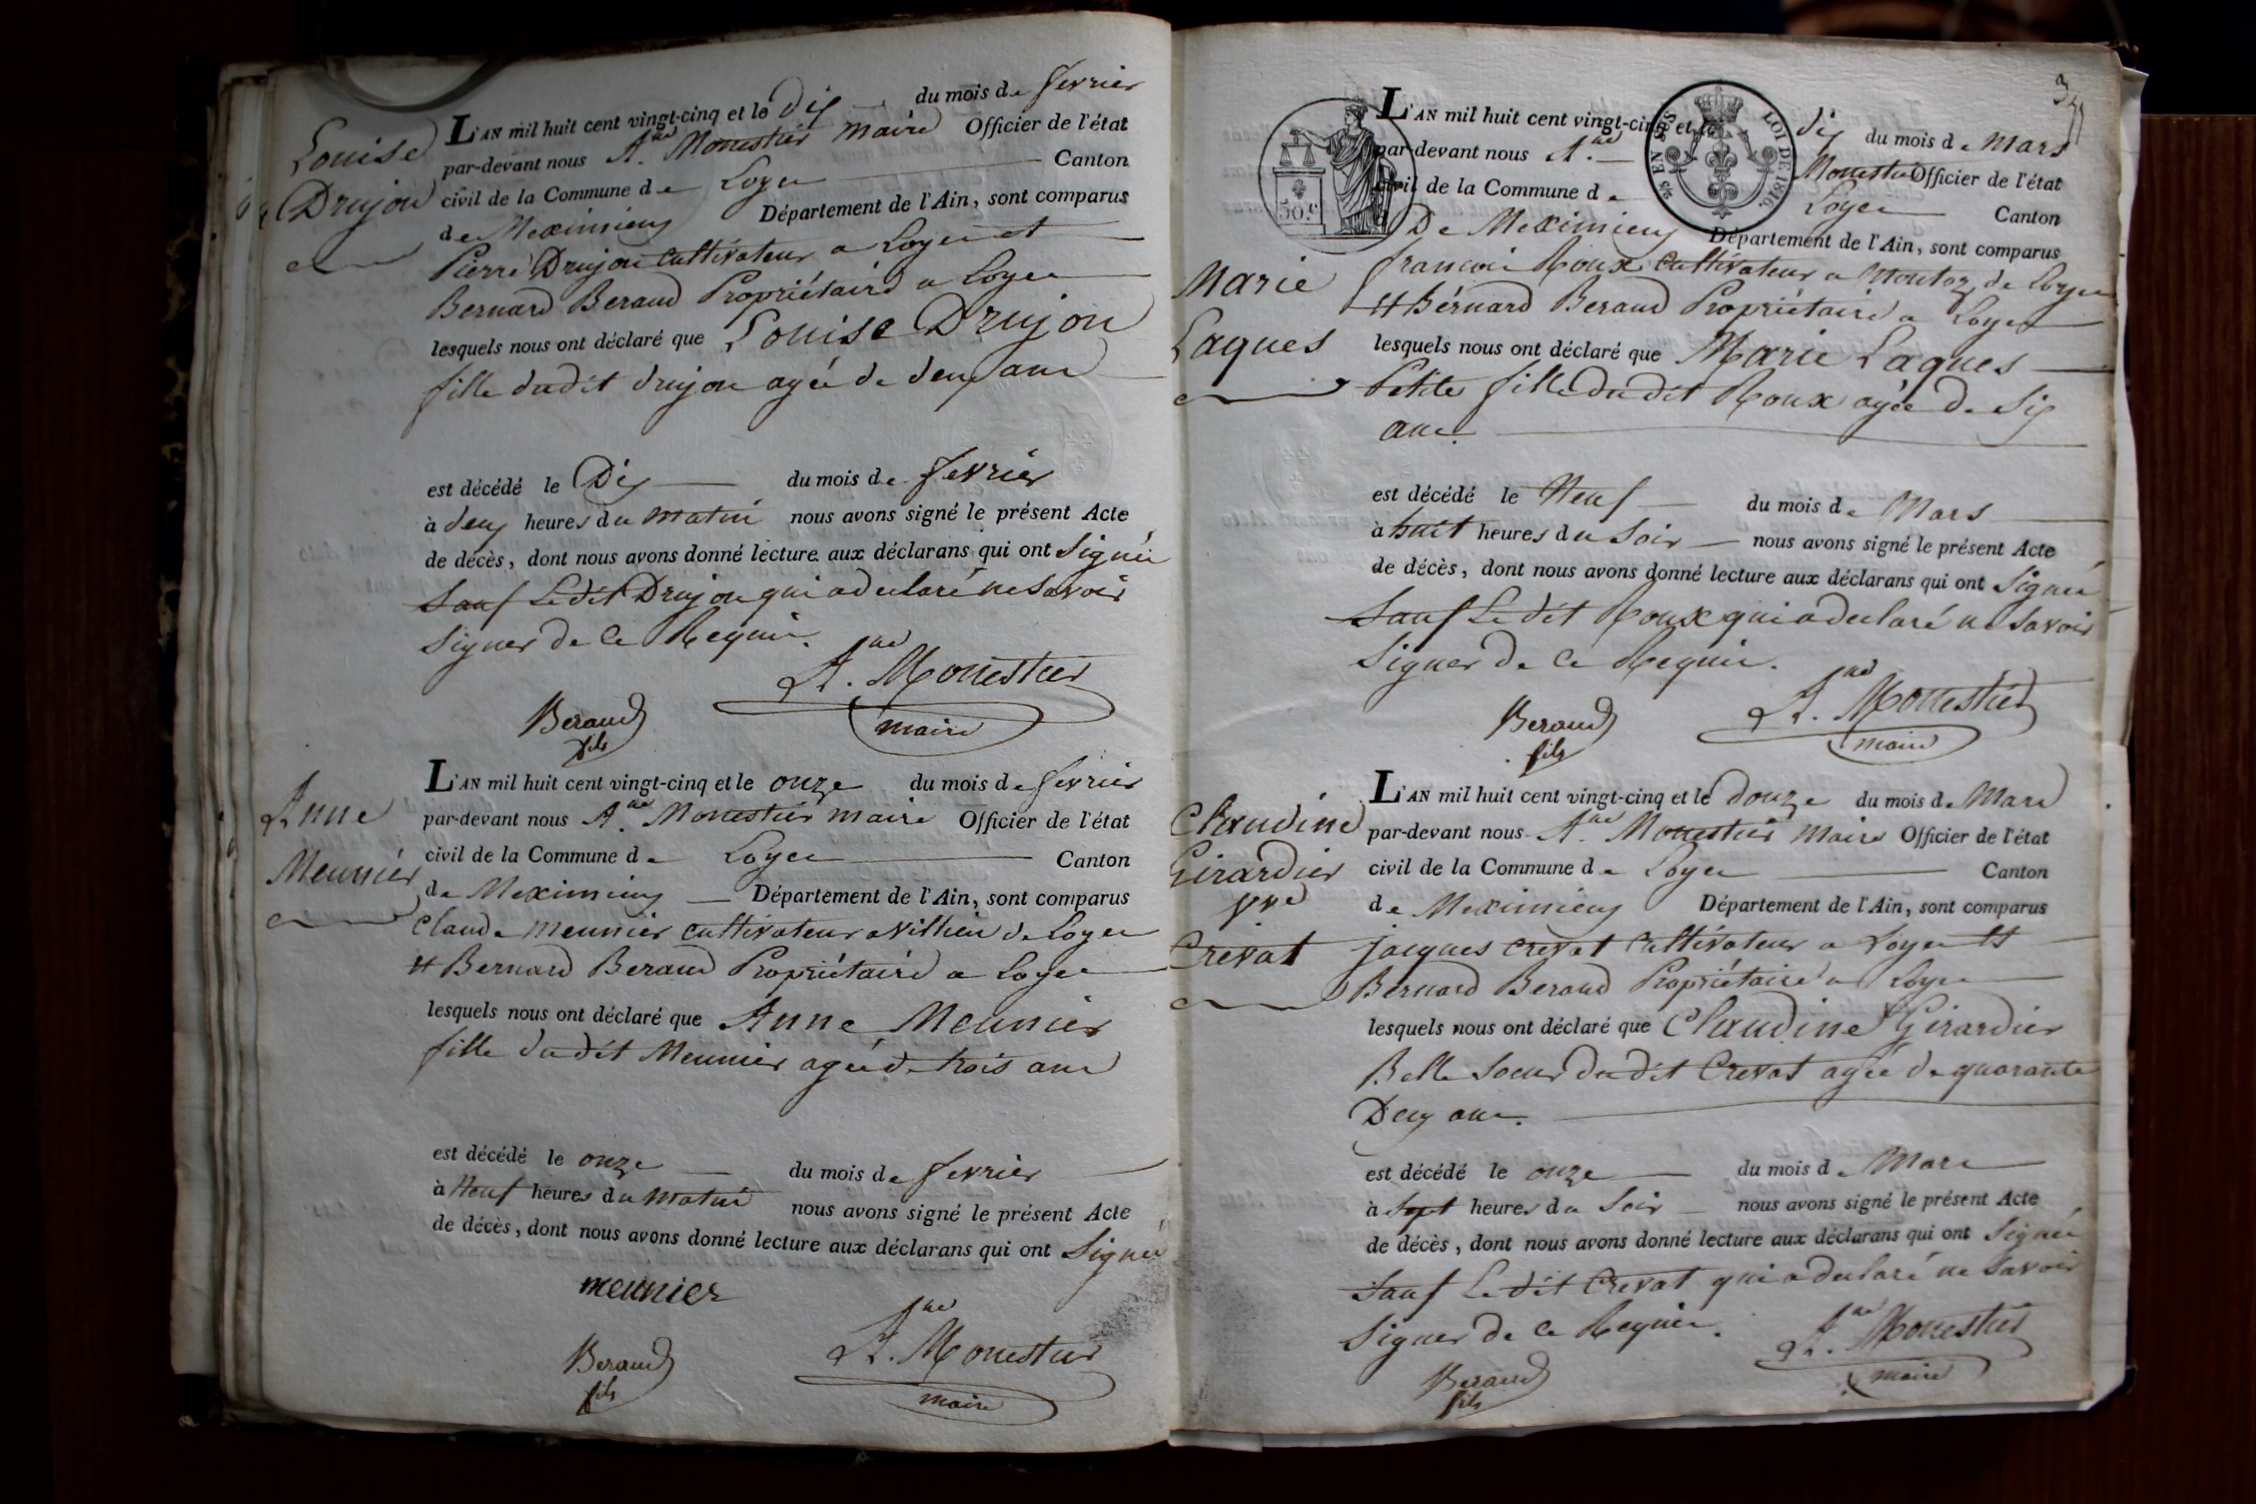 Louise
Drujon
L'AN mil huit cent vingt-cinq et le Dix du mois de fevrier
par-devant nous A.ne Monestier maire Officier de l'état
civil de la Commune de Loyes Canton
de Meximieux Département de l'Ain, sont comparus
Pierre Drujon cultivateur a Loyes et
Bernard Beraud Propriétaire a Loyes
lesquels nous ont déclaré que Louise Drujon
fille dudit drujon agée de deux ans
est décédé le Dix du mois de fevrier
à deux heures du matin nous avons signé le présent Acte
de décès, dont nous avons donné lecture aux déclarans qui ont Signé
Sauf Ledit Drujon qui a declaré ne Savoir
Signer de ce Requis.
A.ne Monestier
Beraud maire
fils
Anne
Meunier
L'AN mil huit cent vingt-cinq et le onze du mois de fevrier
par-devant nous A.ne Monestier maire Officier de l'état
civil de la Commune de Loyes Canton
de Meximieux Département de l'Ain, sont comparus
Claude Meunier cultivateur a villieu de Loyes
et Bernard Beraud Propriétaire a Loyes
lesquels nous ont déclaré que Anne Meunier
fille dudit Meunier agée de trois ans
est décédé le onze du mois de fevrier
à Neuf heures du matin nous avons signé le présent Acte
de décès, dont nous avons donné lecture aux déclarans qui ont Signé
meunier
A.ne Monestier
Beraud maire
fils
50.c
EN SUS
LOI DE 1816.
L'AN mil huit cent vingt-cinq et le dix du mois de Mars
par-devant nous A.ne Monestier Officier de l'état
civil de la Commune de Loyes Canton
De Meximieux Département de l'Ain, sont comparus
Marie
Laques
francois Roux cultivateur a Moutoz de Loyes
et Bérnard Beraud Propriétaire a Loyes
lesquels nous ont déclaré que Marie Laques
Petite fille dudit Roux agée de Six
ans.
est décédé le Neuf du mois de Mars
à huit heures du Soir nous avons signé le présent Acte
de décès, dont nous avons donné lecture aux déclarans qui ont Signé
Sauf Ledit Roux qui a declaré ne Savoir
Signer de ce Requis.
A.ne Monestier
Beraud maire
fils
Claudine
Girardier
vve
Crevat
L'AN mil huit cent vingt-cinq et le douze du mois de Mars
par-devant nous A.ne Monestier Maire Officier de l'état
civil de la Commune de Loyes Canton
de Meximieux Département de l'Ain, sont comparus
jacques Crevat cultivateur a Loyes et
Bernard Beraud Propriétaire a Loyes
lesquels nous ont déclaré que Claudine Girardier
Belle Soeur dudit Crevat agée de quarante
Deux ans.
est décédé le onze du mois de Mars
à Sept heures du Soir nous avons signé le présent Acte
de décès, dont nous avons donné lecture aux déclarans qui ont Signé
Sauf Ledit Crevat qui a declaré ne Savoir
Signer de ce Requis.
A.ne Monestier
Beraud maire
fils